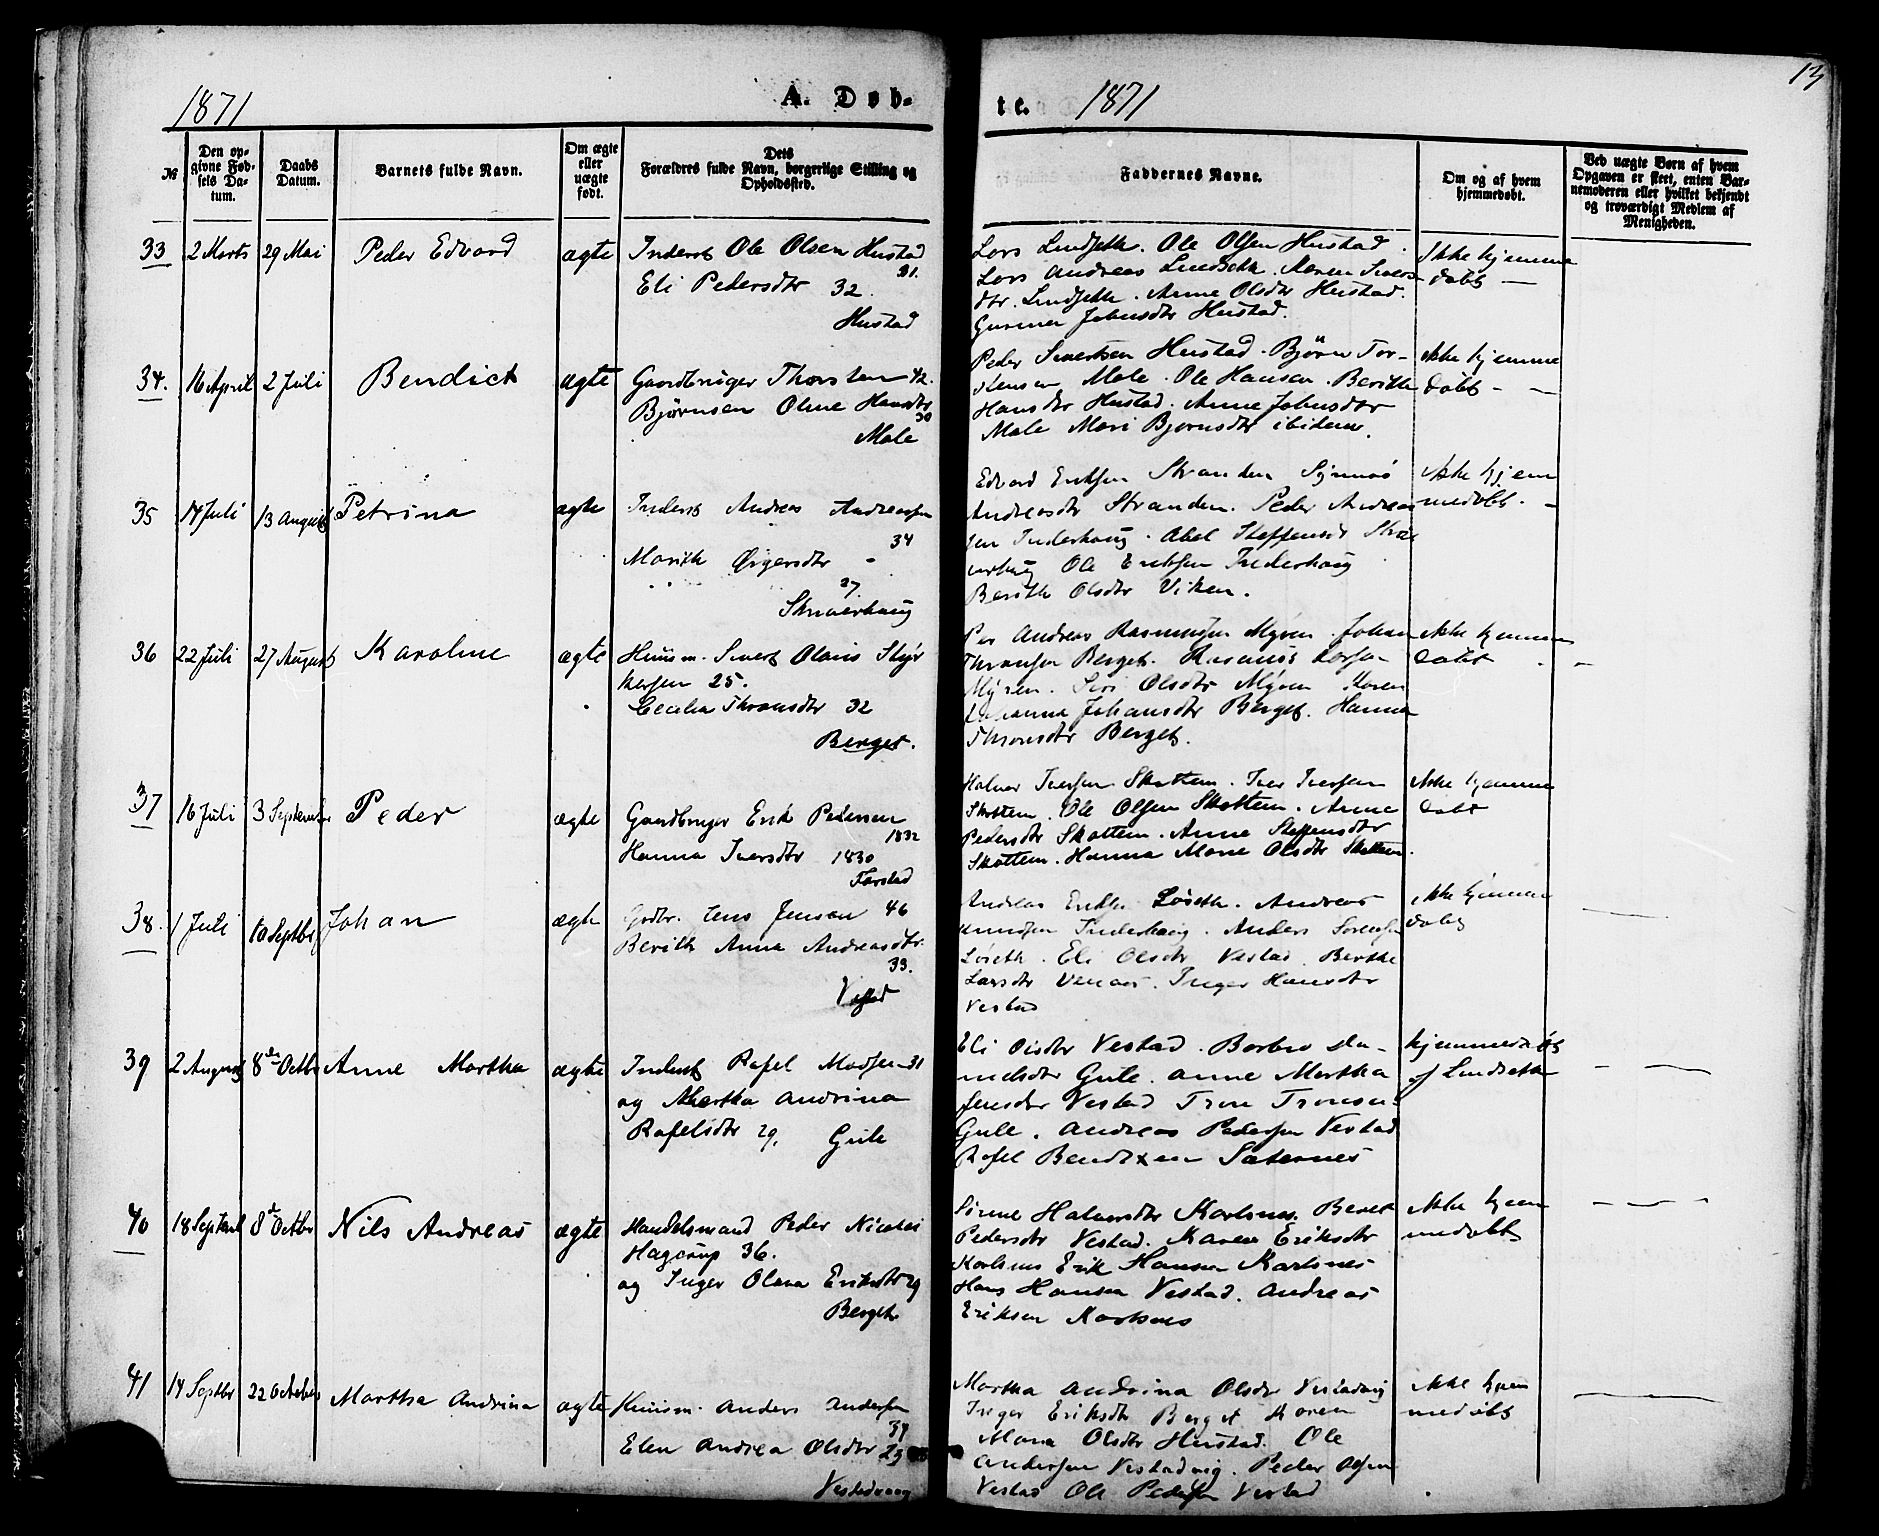 13
1871
A. Døb-
te.
1871
№
Den op-
givne Fød-
sels Da-
tum.
Daabs
Datum.
Barnets fulde Navn.
Om ægte
eller
uægte
født.
Dets
Forældres fulde Navn, borgerlige Stilling og
Opholdssted.
Faddernes Navne.
Om og af hvem
hjemmedøbt.
Ved uægte Børn af hvem
Opgaven er skeet, enten Bar-
nemoderen eller hvilket bekjendt
og troværdigt Medlem af
Menigheden.
33
2 Marts
29 Mai
Peder Edvard
ægte
Inderst Ole Olsen Hustad
31.
Eli Pedersdtr 32.
Hustad
Lars Lindseth. Ole Olsen Hustad.
Lars Andreas Lindseth. Maren Sivers-
dtr. Lindseth. Anne Olsdtr Hustad.
Gurina Johnsdtr Hustad.
Ikke hjemme
døbt —
34.
16 April
2 Juli
Bendict
ægte
Gaardbruger Thorsten 42.
Bjørnsen Oline Hansdtr
30
Male
Peder Sivertsen Hustad. Bjørn Tor-
stensen Male. Ole Hansen. Berith
Hansdtr Hustad. Anne Johnsdtr
Male Mari Bjørnsdtr ibidem.
Ikke hjemme
døbt - —
35
14 Juli
13 August
Petrina
ægte
Inderst Andreas Andreassen
34
Marith Ørgersdtr
27.
Skriverhaug
Edvard Eriksen Stranden Synnøs
Andreasdtr Stranden. Peder Andrea
sen Inderhaug. Abel Steffensdtr Skri
verhaug Ole Eriksen Inderhaug
Berith Olsdtr Viken.
Ikke hjem
medøbt. —
36
22 Juli
27 August
Karoline
ægte
Huusm. Sivert Olaus Styr
kersen 25.
Cecilia Thronsdtr 32
Berget.
Per Andreas Rasmussen Myren. Johan
Thronsen Berget. Rasmus Larsen
Myren. Siri Olsdtr Myren Karen
Johanna Johansdtr Berget. Hanna
Thronsdtr Berget.
Ikke hjemme
døbt - —
37
16 Juli
3 September
Peder
ægte
Gaardbruger Erik Pedersen
1832
Hanna Iversdtr 1830
Farstad
Halvor Iversen Skottem. Iver Iversen
Skottem. Ole Olsen Skottem. Anne
Pedersdtr Skottem. Anne Steffensdtr
Skottem. Hanna Marie Olsdtr Skottem.
Ikke hjemme
døbt
38.
1 Juli
10 Septbr
Johan
ægte
Grdbr. Jens Jensen 46
Berith Anna Andreasdtr.
33.
Vestad
Andreas Løseth. Andreas
Inderhaug. Anders Sørensen
Løseth. Eli Olsdtr Vestad. Berthe
Larsdtr Venaas. Inger Hansdtr
Vestad
Ikke hjemme
døbt
39
2 August
8de Octbr
Anne Martha
ægte
Inderst Rafel Madsen 31
og Martha Andrina
Rafelsdtr 29. Gule
Eli Olsdtr Vestad. Barbro Da-
nielsdtr Gule. Anne Martha
Jensdtr Vestad Tron Tronsen
Gule. Andreas Pedersen Vestad
Rafel Bendixen Sæternes
hjemmedøbt
af Lindseth
40
18 Septemb
8de Octbr
Nils Andreas
ægte
Handelsmand Peder Nicolai
Hagerup 36.
og Inger Olava Eriksdtr 29
Berget
Sirine Halversdtr Karlsnes. Beret
Pedersdtr Vestad. Karen Eriksdtr
Karlsnes Erik Hansen Karlsnes
Hans Hansen Vestad. Andreas
Eriksen Karlsnes
Ikke hjem
medøbt
41
14 Septbr
22 October
Martha Andrina
ægte
Huusm. Anders Andersen
34
Elen Andrea Olsdtr 29
Vestadvaag
Martha Andrina Olsdtr Vestadvig
Inger Eriksdtr Berget Karen
Maria Olsdtr Hustad. Ole
Andersen Vestadvig. Peder Olsen
Vestad Ole Pedersen Vestad
Ikke hjem
medøbt